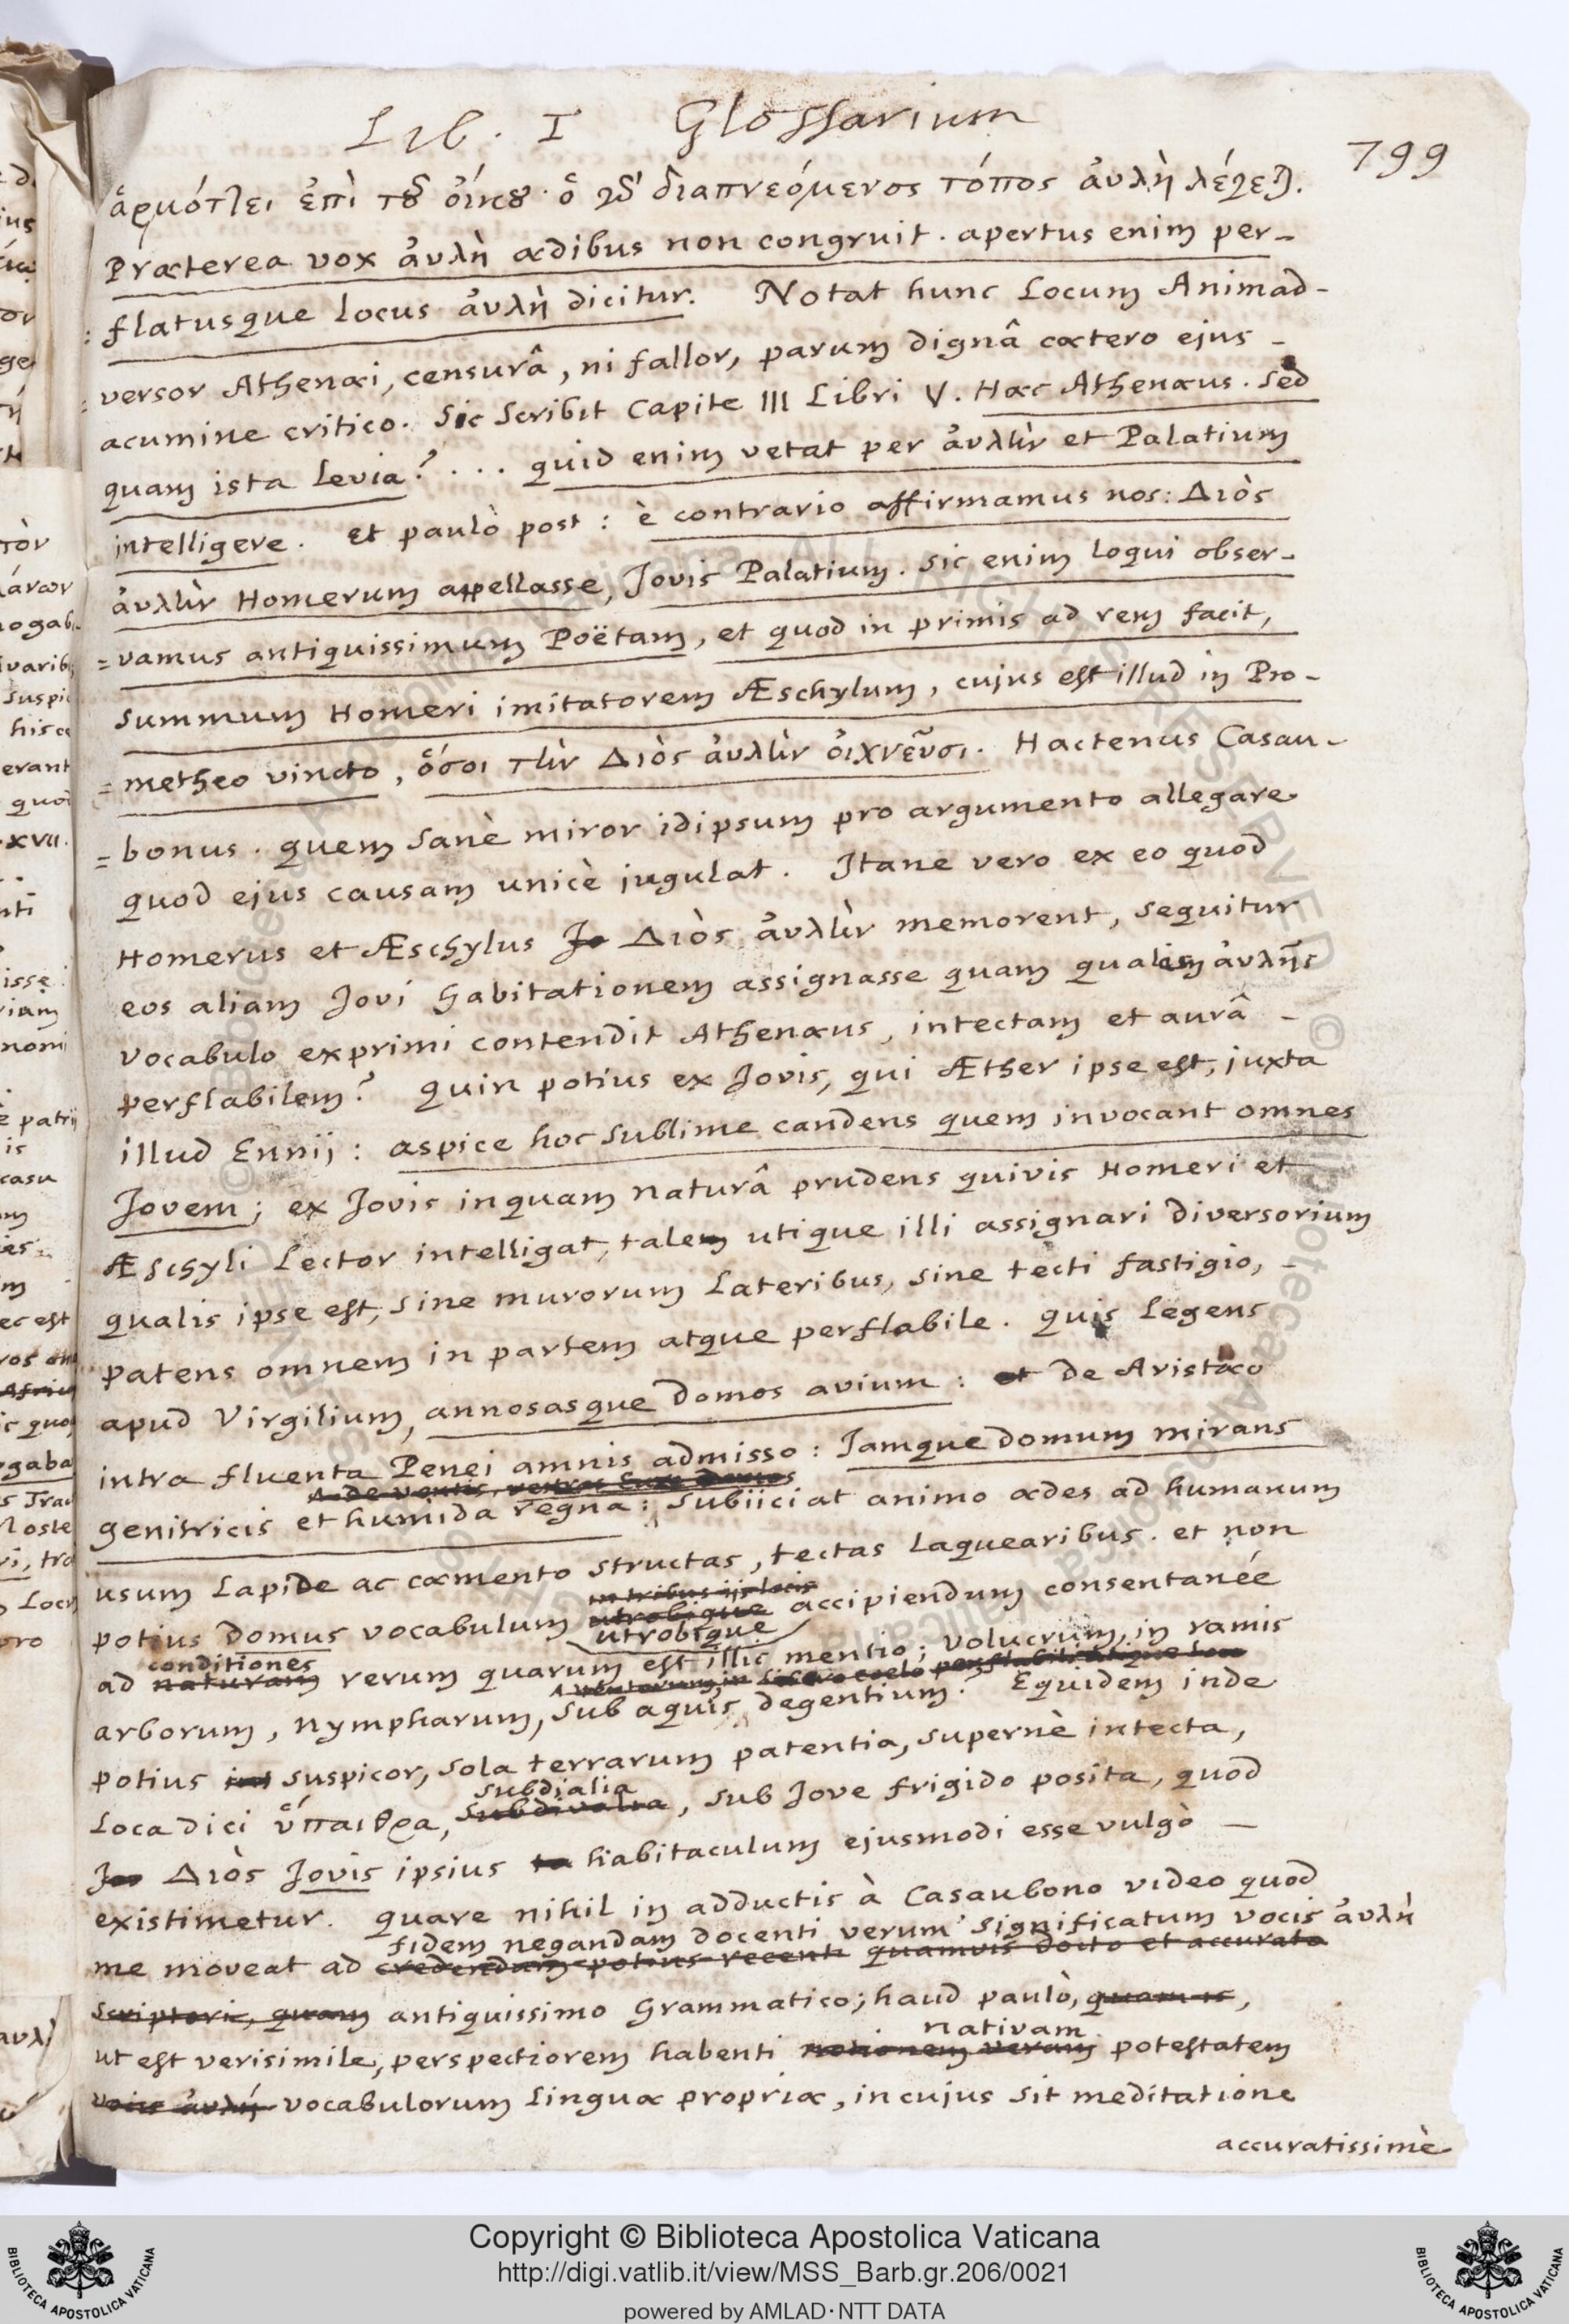 Lib. I Glossarium
799
ἁρμόττει ἐπὶ τοῦ οἴκου· ὁ γὰρ διαπνεόμενος τόπος ἀυλὴ λέγεται.
Præterea vox ἀυλὴ ædibus non congruit. apertus enim per-
flatusque locus ἀυλὴ dicitur. Notat hunc Locum Animad-
versor Athenæi, censurâ, ni fallor, parum dignâ cætero ejus -
acumine critico. Sic scribit Capite III Libri V. Hæc Athenæus. sed
quam ista levia? ... quid enim vetat per ἀυλὴν et Palatium
intelligere. et paulò post: è contrario affirmamus nos: Διὸς
ἀυλὴν Homerum appellasse, Jovis Palatium. sic enim loqui obser-
=vamus antiquissimum Poëtam, et quod in primis ad rem facit,
summum Homeri imitatorem Æschylum, cujus est illud in Pro-
=metheo vincto, ὅσοι τὴν Διὸς ἀυλὴν ὀιχνεῦσι. Hactenus Casau-
=bonus. quem sanè miror idipsum pro argumento allegare
quod ejus causam unicè jugulat. Itane vero ex eo quod
Homerus et Æschylus Jo Διὸς ἀυλὴν memorent, sequitur
eos aliam Jovi habitationem assignasse quam qualem ἀυλῆς
vocabulo exprimi contendit Athenæus, intectam et aurâ -
perflabilem? Quin potius ex Jovis, qui Æther ipse est, juxta
illud Ennij: aspice hoc sublime candens quem invocant omnes
Jovem; ex Jovis inquam naturâ prudens quivis Homeri et
Æschyli Lector intelligat, talem utique illi assignari diversorium
qualis ipse est, sine murorum lateribus, sine tecti fastigio, -
patens omnem in partem atque perflabile. Quis legens
apud Virgilium, annosasque domos avium: et de Aristæo
intra fluenta Penei amnis admisso: Iamque domum mirans
genitricis et humida regna: subiiciat animo ædes ad humanum
usum lapide ac cæmento structas, tectas laquearibus. et non
in tribus ijs locis
potius domus vocabulum utrobique accipiendum consentanéé
utrobique
conditiones
ad naturam rerum quarum est illic mentio; volucrum, in ramis
arborum, nympharum, sub aquis degentium? Equidem inde
potius suspicor, sola terrarum patentia, supernè intecta,
subdialia
Loca dici ὕπαιθρα, subdivalia, sub Jove frigido posita, quod
Διὸς Jovis ipsius habitaculum ejusmodi esse vulgò -
existimetur. Quare nihil in adductis à Casaubono video quod
fidem negandam docenti verum significatum vocis ἀυλὴ
me moveat ad credendum potius recenti quamvis docto et accurato
scriptori, quam antiquissimo Grammatico; haud paulò, quamvis,
nativam
ut est verisimile, perspectiorem habenti notionem veram potestatem
vocis ἀυλή vocabulorum linguæ propriæ, in cujus sit meditatione
accuratissimè
Copyright © Biblioteca Apostolica Vaticana
http://digi.vatlib.it/view/MSS_Barb.gr.206/0021
powered by AMLAD·NTT DATA
BIBLIOTECA APOSTOLICA VATICANA
BIBLIOTECA APOSTOLICA VATICANA